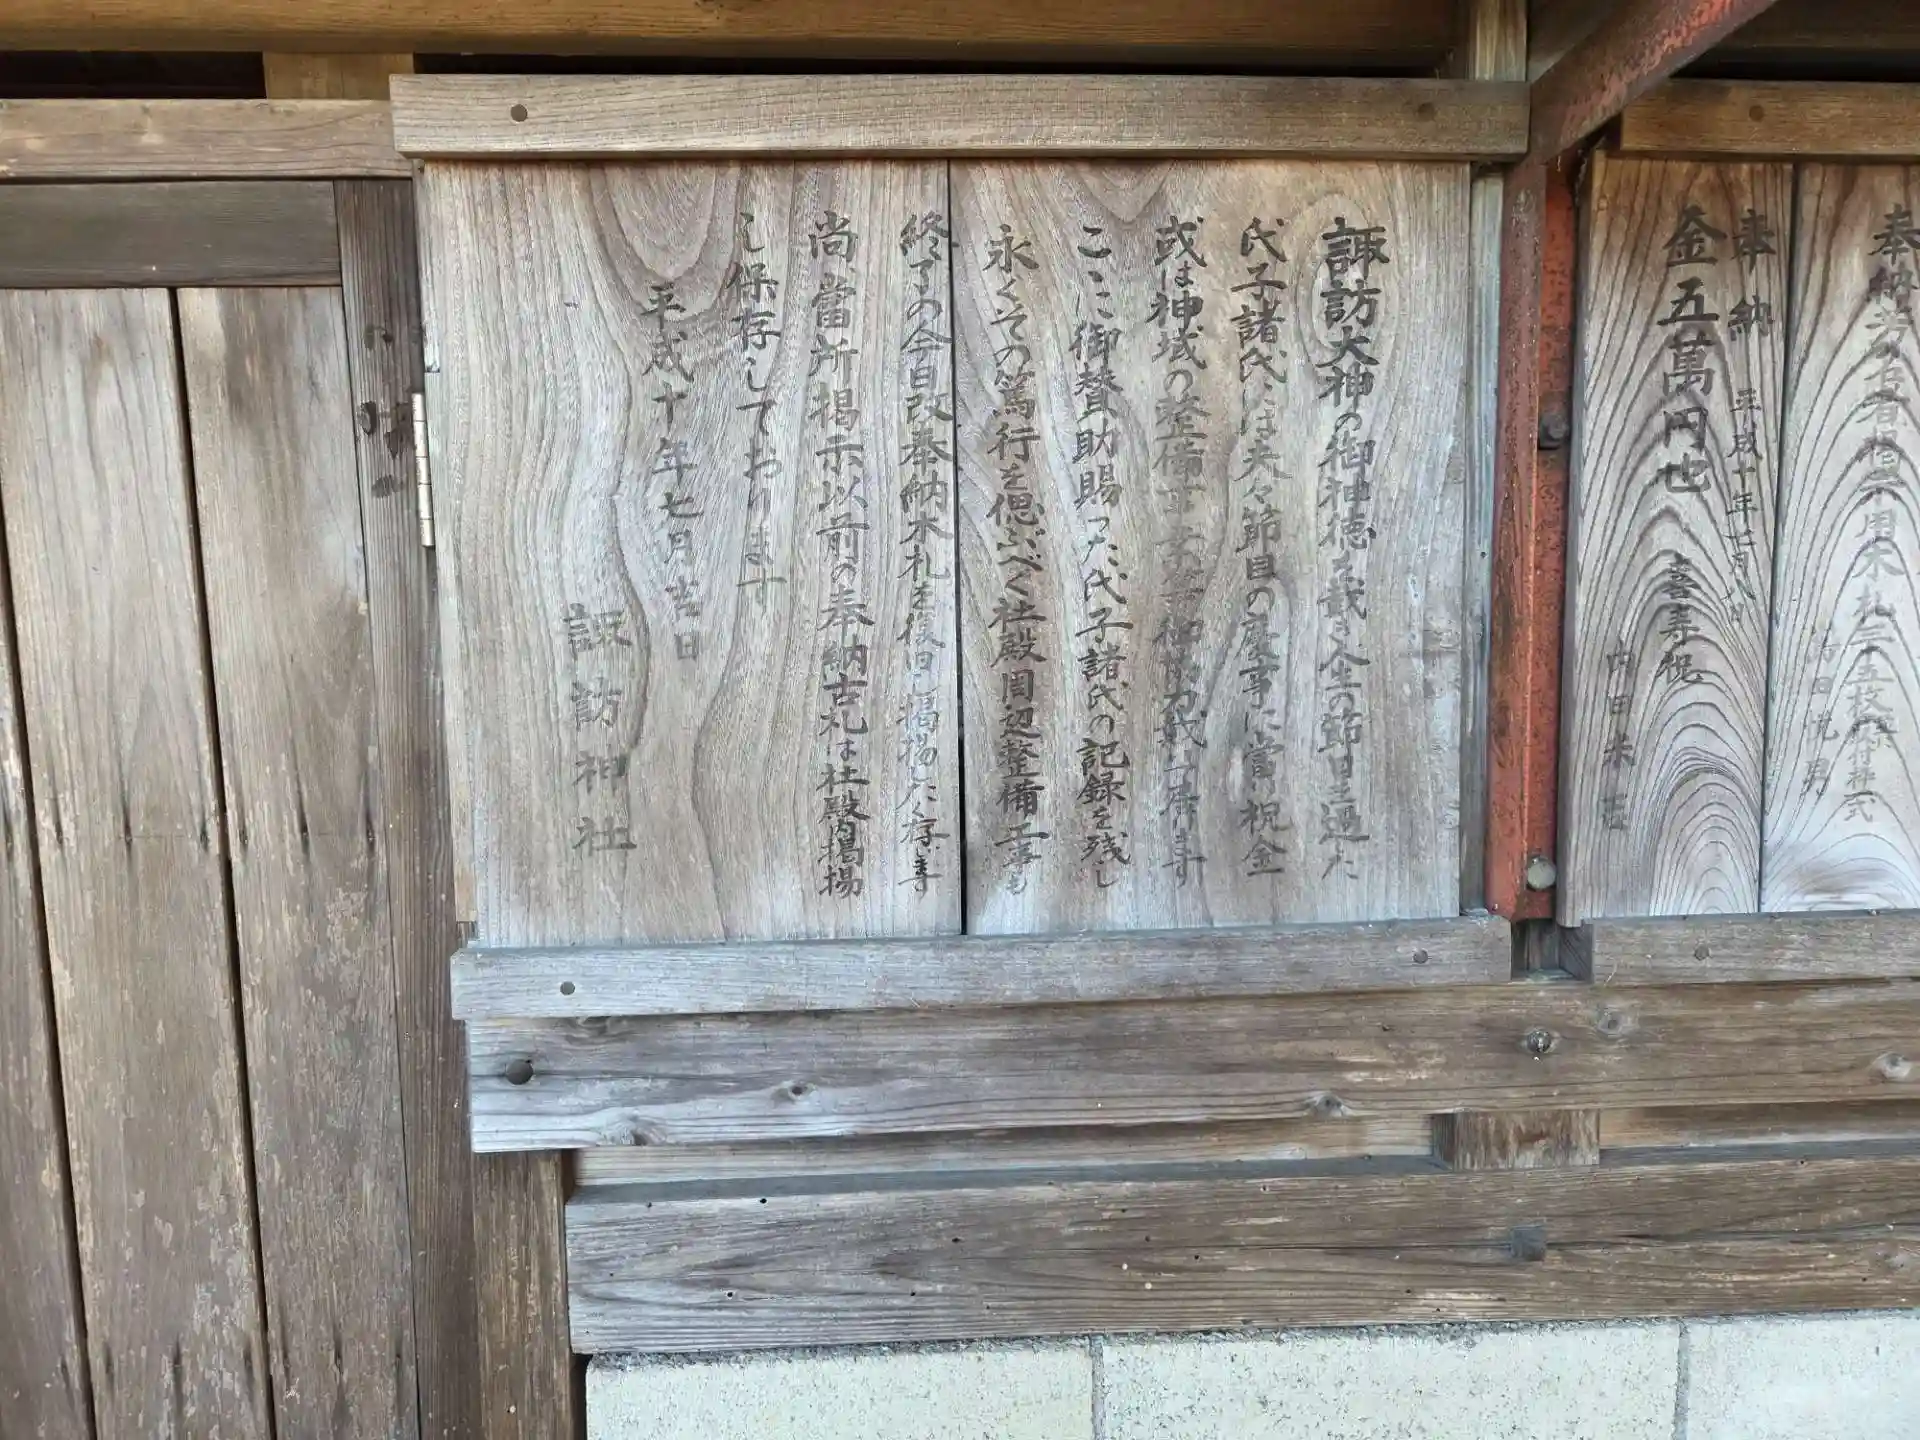 奉納
用木札三十五枚
奉納 平成十年七月八日
金五萬円也 喜寿祝
内田
諏訪大神の御神徳を戴き人生の節目を迎た
氏子諸氏には夫々節目の慶事に當り祝金
或は神域の整備事業等御協力戴いて居ます
ここに御賛助賜った氏子諸氏の記録を残し
永くその篤行を偲ぶべく社殿周辺整備工事も
終了の今日改奉納木札を復旧し掲揚した存ます
尚當所掲示以前の奉納古札は社殿内掲揚
し保存しております
平成十年七月吉日
諏訪神社